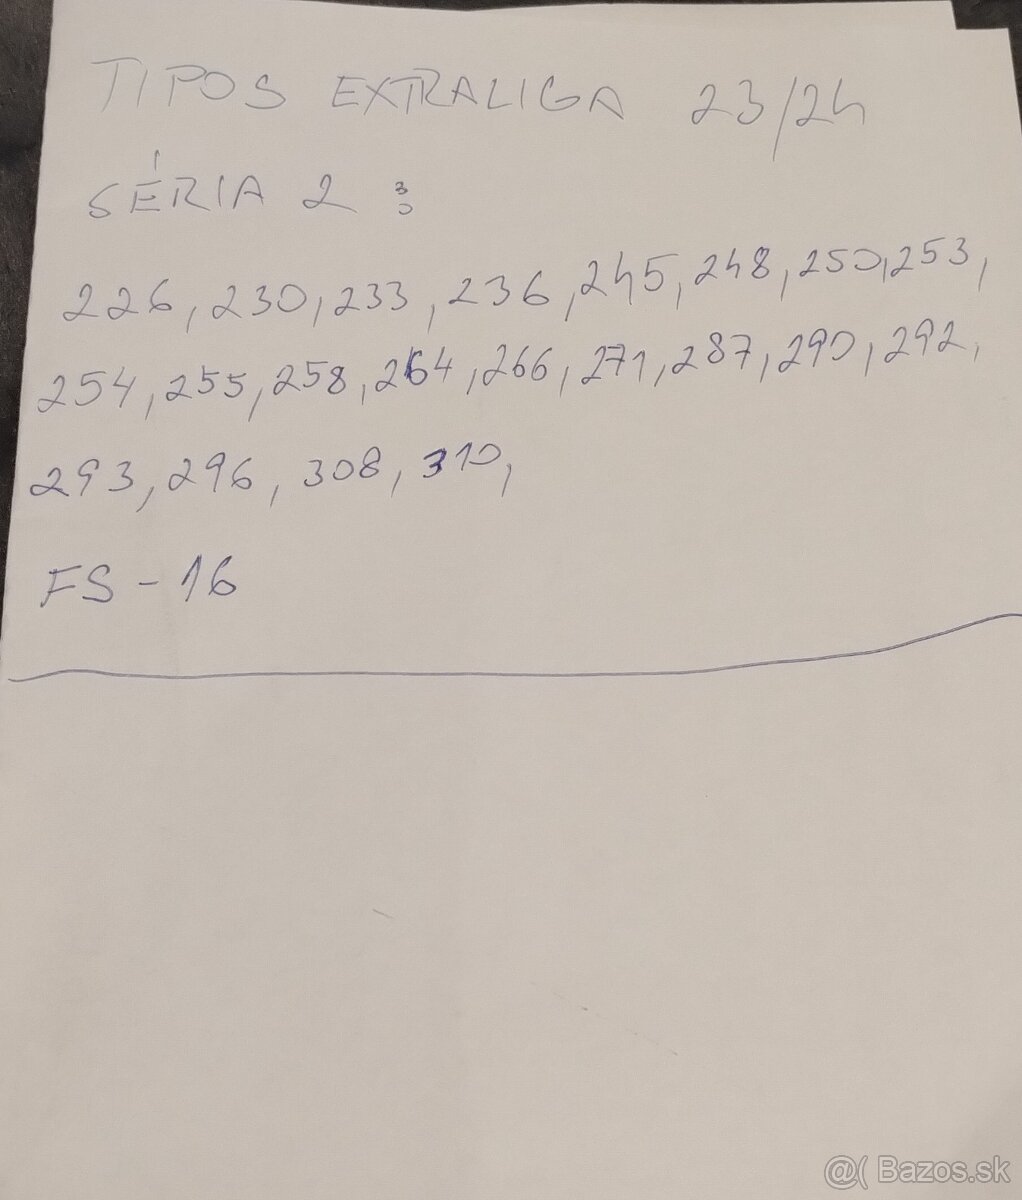 TIPOS EXTRALIGA 23/24
SÉRIA 2 :
226, 230, 233, 236, 245, 248, 250, 253,
254, 255, 258, 264, 266, 271, 287, 290, 292,
293, 296, 308, 310,
FS - 16
@( Bazos.sk